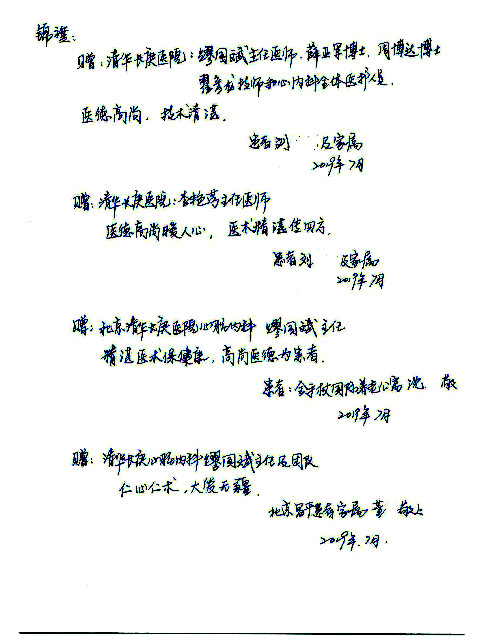 锦旗:
赠:清华长庚医院:缪国斌主任医师、薛亚军博士、周博达博士
技师和心内科全体医护人员.
医德高尚,技术精湛.
患者刘 及家属
2019年7月
赠:清华长庚医院:杏艳芳主任医师
医德高尚暖人心,医术精湛传四方.
患者刘 及家属
2019年7月
赠:北京清华长庚医院心脏内科 缪国斌主任
精湛医术保健康,高尚医德为患者.
患者:金手杖国际养老公寓 沈 敬
2019年7月
赠:清华长庚心脏内科缪国斌主任及团队
仁心仁术,大爱无疆.
北京 患者家属 董 敬上
2019年.7月.